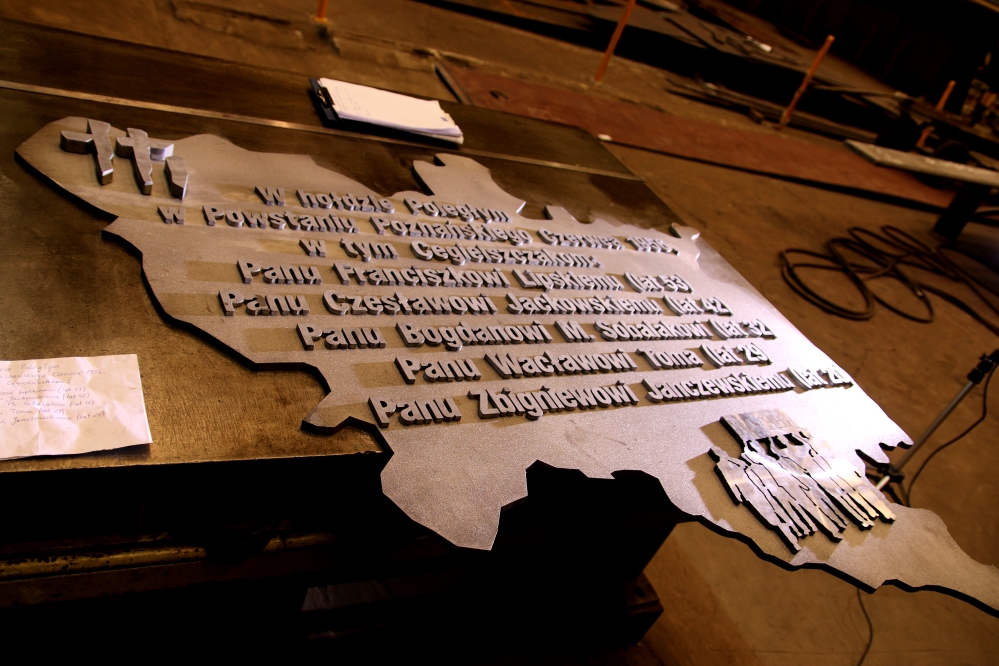 W hołdzie Poległym
w Powstaniu Poznańskiego Czerwca 1956
w tym Cegielszczakom:
Panu Franciszkowi Lipskiemu (lat 53)
Panu Czesławowi Jackowskiemu (lat 42)
Panu Bogdanowi M. Sobalakowi (lat 32)
Panu Wacławowi Toma (lat 29)
Panu Zbigniewowi Janczewskiemu (lat 20)